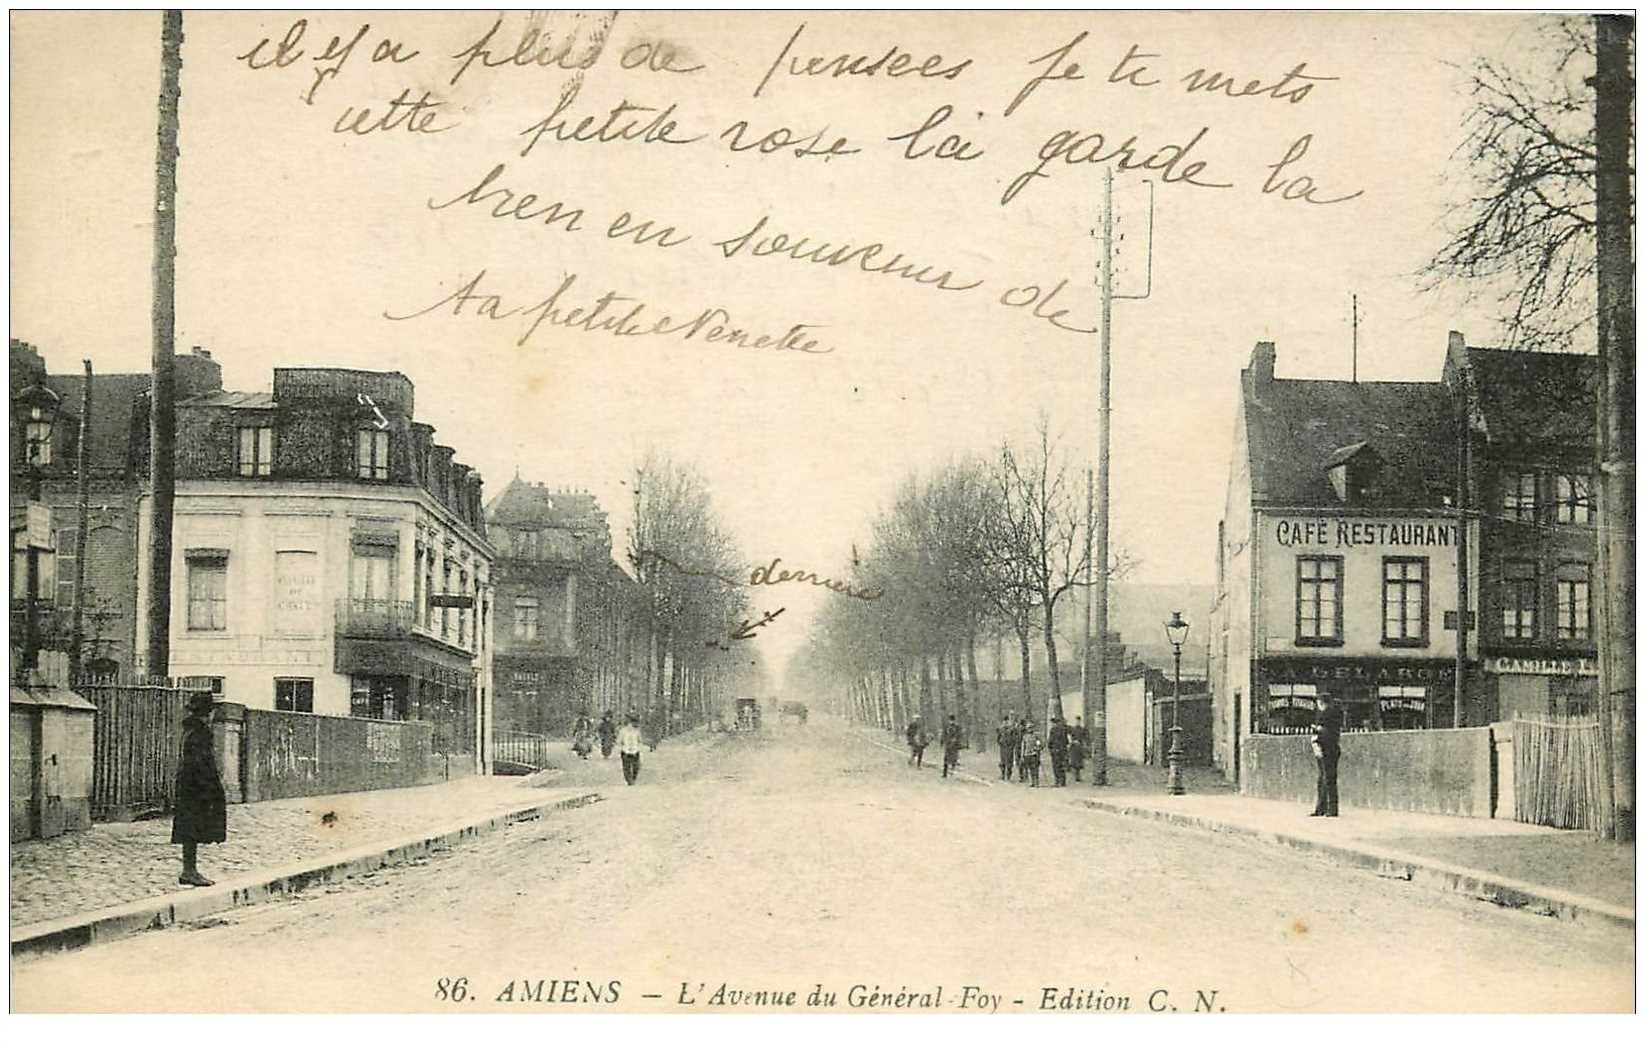 il y a plus de pensees je te mets
cette petite rose la garde la
bien en souvenir de
ta petite Nenette
derriere
CAFÉ RESTAURANT
CAMILLE L
86. AMIENS - L'Avenue du Général-Foy - Edition C. N.